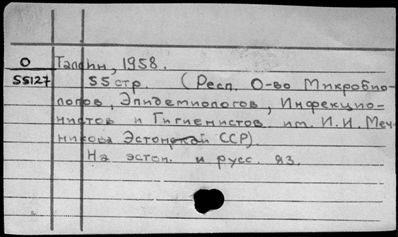 О Таллин, 1958.
55127 55 стр. (Респ. О-во Микробио-
логов, Эпидемиологов, Инфекцио-
нистов и Гигиенистов им. И.И. Меч-
никова Эстонской ССР).
На эстон. и русс. яз.